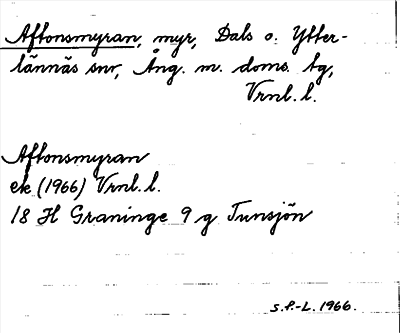 Aftonsmyran, myr, Dals o. Ytter-
lännäs snr, Ång. m. doms. tg,
Vrnl. l.
Aftonsmyran
ek (1966) Vrnl. l.
18 H Graninge 9 g Tunsjön
S.F.-L. 1966.